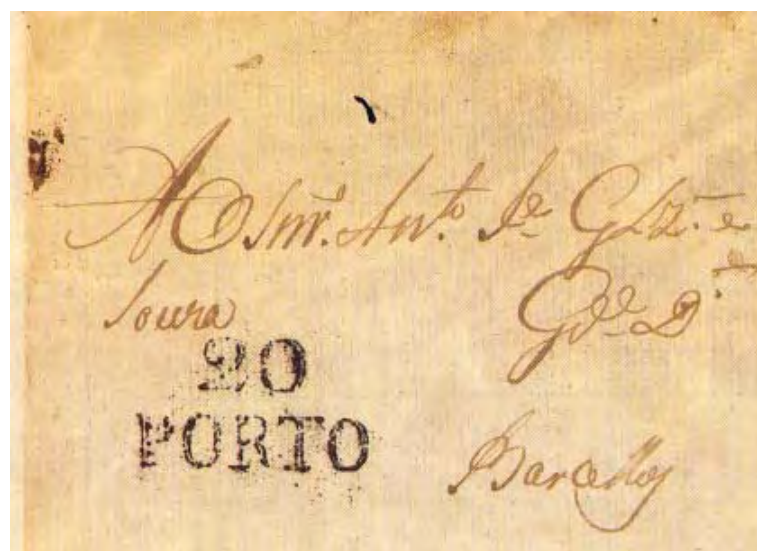 Ao Snr. Anto. Je. Glz. e
Souza Gde. D.
20
PORTO
Barcellos